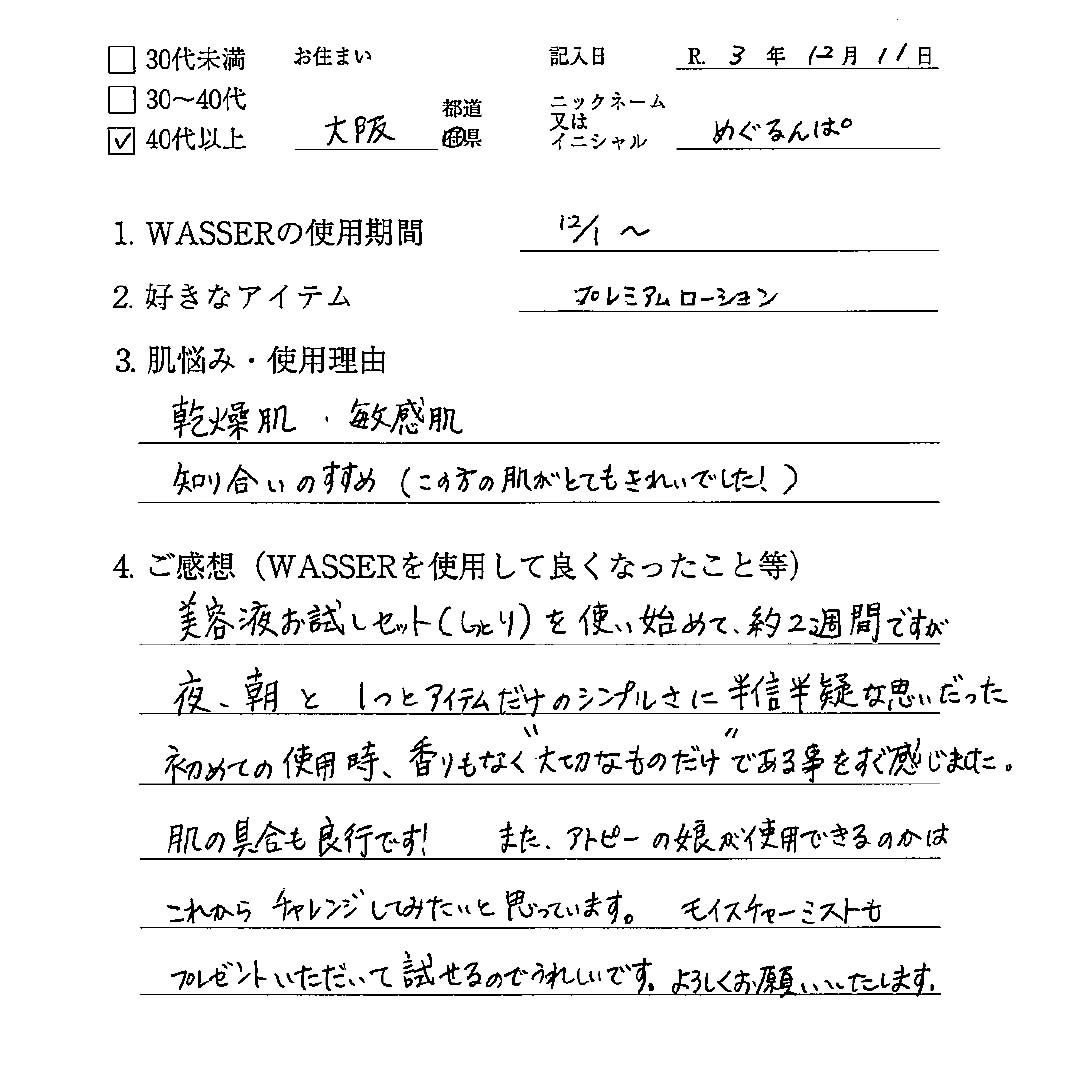 □ 30代未満 お住まい 記入日 R. 3 年 12月 11日
□ 30～40代 大阪 都道府県 ニックネーム又はイニシャル めぐるんぱ
☑ 40代以上
1. WASSERの使用期間 12/1 ～
2. 好きなアイテム プレミアムローション
3. 肌悩み・使用理由
乾燥肌・敏感肌
知り合いのすすめ（この方の肌がとてもきれいでした！）
4. ご感想（WASSERを使用して良くなったこと等）
美容液お試しセット（しっとり）を使い始めて、約2週間ですが
夜、朝と 1つとアイテムだけのシンプルさに半信半疑な思いだった
初めての使用時、香りもなく“大切なものだけ”である事をすぐ感じました。
肌の具合も良行です！ また、アトピーの娘が使用できるのかは
これから チャレンジしてみたいと思っています。 モイスチャーミストも
プレゼントいただいて試せるのでうれしいです。よろしくお願いいたします。